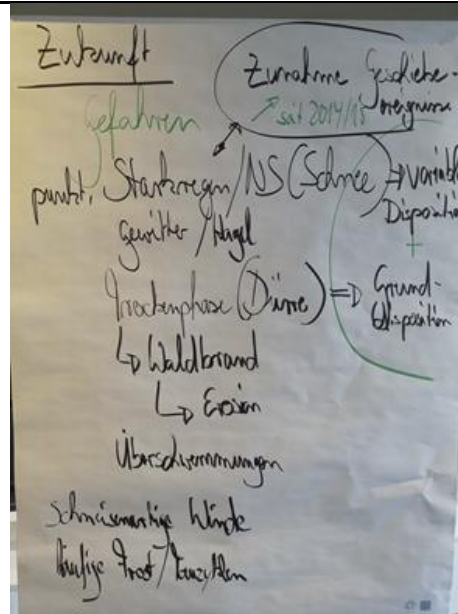 Zukunft
Zunahme Geschiebe-
ereignisse
↗ seit 2014/15
Gefahren
punkt. Starkregen/NS (Schnee) ⇒ variable
Disposition
+
Gewitter/Hagel
Trockenphase (Dürre) ⇒ Grund-
disposition
↳ Waldbrand
↳ Erosion
Überschwemmungen
Schneisenartige Winde
häufige Frost/Tauzyklen